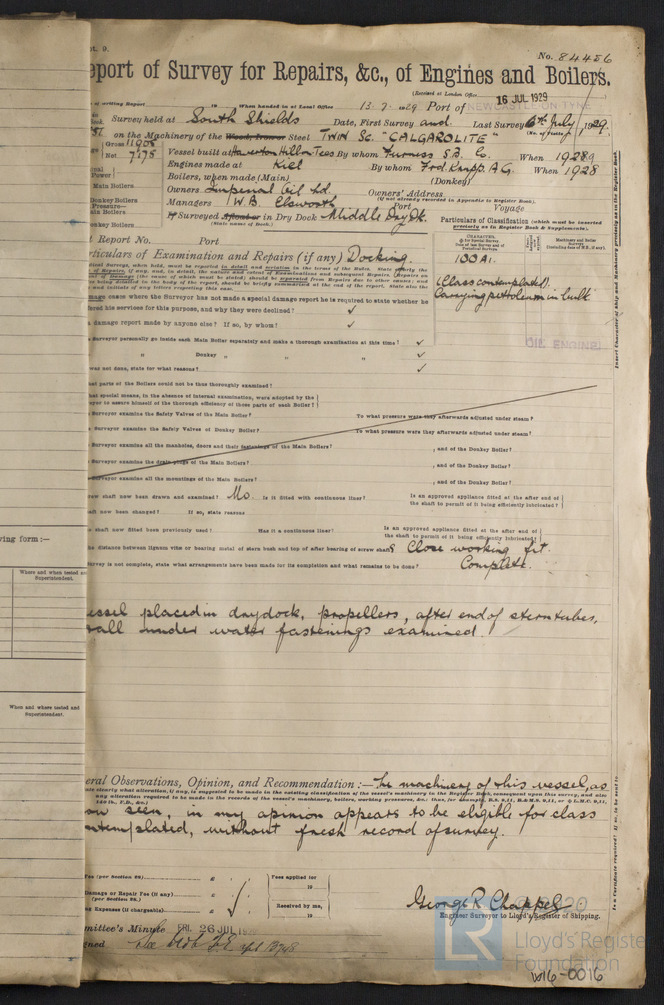 pt. 9.
No. 84456
eport of Survey for Repairs, &c., of Engines and Boilers.
(Received at London Office 16 JUL 1929
of writing Report 19 When handed in at Local Office 13.7.1929 Port of NEWCASTLE-ON-TYNE
Survey held at South Shields Date, First Survey and Last Survey 6th July, 1929
on the Machinery of the Wood, Iron or Steel TWIN Sc. "CALGAROLITE"
Gross 11905
Net 7175
Vessel built at Haverton Hill on Tees By whom Furness S.B. Co. When 1928
Engines made at Kiel By whom Frd Krupp A.G. When 1928
Boilers, when made (Main) (Donkey)
Owners Imperial Oil Ltd. Owners' Address
(If not already recorded in Appendix to Register Book.)
Managers W.B. Elsworth Port Voyage
If Surveyed Afloat or in Dry Dock Middle Dry Dk.
(State name of Dock.)
Particulars of Classification (which must be inserted
precisely as in Register Book & Supplements).
100A1.
(Class contemplated)
Carrying petroleum in bulk
OIL ENGINE)
t Report No. Port
rticulars of Examination and Repairs (if any) Docking.
amage cases where the Surveyor has not made a special damage report he is required to state whether he
ered his services for this purpose, and why they were declined? ✓
a damage report made by anyone else? If so, by whom? ✓
Surveyor personally go inside each Main Boiler separately and make a thorough examination at this time? ✓
" Donkey " " " ✓
was not done, state for what reasons? ✓
hat parts of the Boilers could not be thoroughly examined?
hat special means, in the absence of internal examination, were adopted by the
eyor to assure himself of the thorough efficiency of those parts of each Boiler?
Surveyor examine the Safety Valves of the Main Boiler? To what pressure were they afterwards adjusted under steam?
Surveyor examine the Safety Valves of Donkey Boiler? To what pressure were they afterwards adjusted under steam?
Surveyor examine all the manholes, doors and their fastenings of the Main Boilers? , and of the Donkey Boiler?
Surveyor examine the drain plugs of the Main Boilers? , and of the Donkey Boiler?
Surveyor examine all the mountings of the Main Boilers? , and of the Donkey Boiler?
rew shaft now been drawn and examined? No. Is it fitted with continuous liner? Is an approved appliance fitted at the after end of
the shaft to permit of it being efficiently lubricated?
aft now been changed? If so, state reasons
shaft now fitted been previously used? Has it a continuous liner? Is an approved appliance fitted at the after end of
the shaft to permit of it being efficiently lubricated?
he distance between lignum vitæ or bearing metal of stern bush and top of after bearing of screw shaft? Close working fit.
urvey is not complete, state what arrangements have been made for its completion and what remains to be done? Complete.
ving form:—
Where and when tested and
Superintendent.
essel placed in drydock, propellers, after end of sterntubes,
all under water fastenings examined.
When and where tested and
Superintendent.
eral Observations, Opinion, and Recommendation:— The machinery of this vessel, as
ow seen, in my opinion appears to be eligible for class
ntemplated, without fresh record of survey.
Fee (per Section 29) £
Damage or Repair Fee (if any) £
(per Section 29.)
ng Expenses (if chargeable) £
Fees applied for
19
Received by me,
19
George R Chappel
Engineer Surveyor to Lloyd's Register of Shipping.
mmittee's Minute FRI. 26 JUL 1929
gned See
LR
Lloyd's Register
Foundation
W16-0016